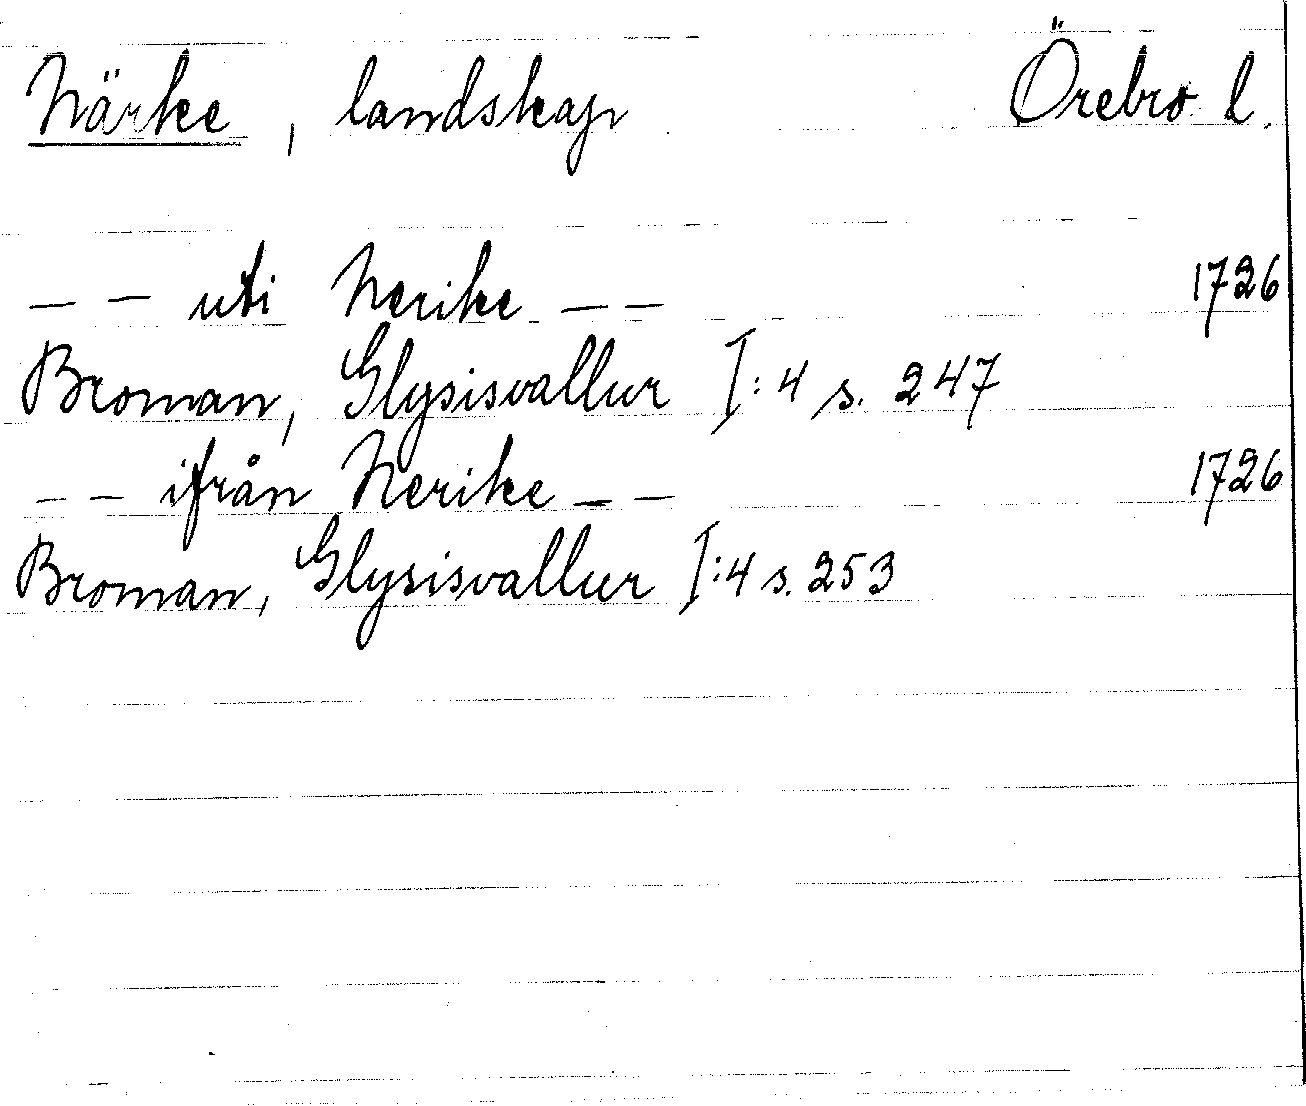 Närke, landskap Örebro l.
— — uti Nerike — — 1726
Broman, Glysisvallur I:4 s. 247
— — ifrån Nerike — — 1726
Broman, Glysisvallur I:4 s. 253